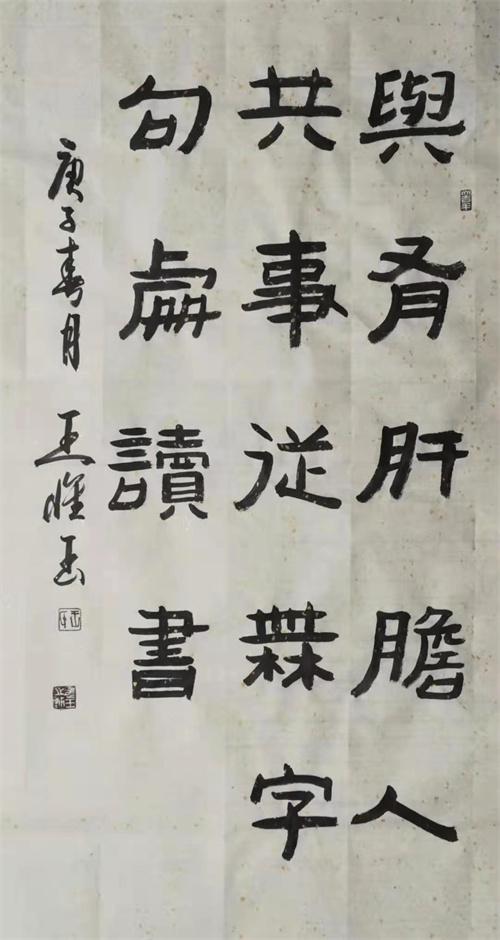 與有肝膽人
共事從無字
句處讀書
庚子春月 王